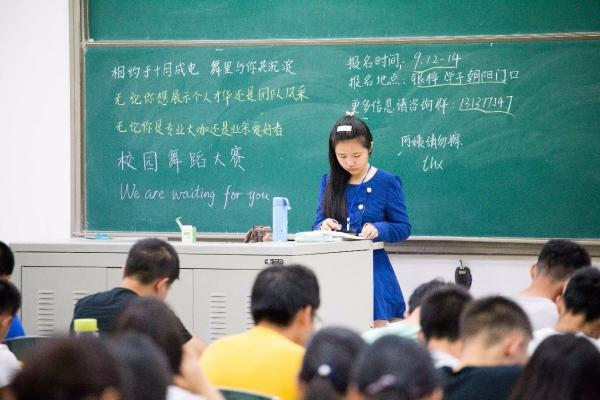 相约于十月成电 舞里与你共沉淀
无论你想展示个人才华还是团队风采
无论你是专业大咖还是业余爱好者
校园舞蹈大赛
We are waiting for you
报名时间: 9.12-14
报名地点: 银桦 学子 朝阳门口
更多信息请咨询群:
阿姨请勿擦
thx